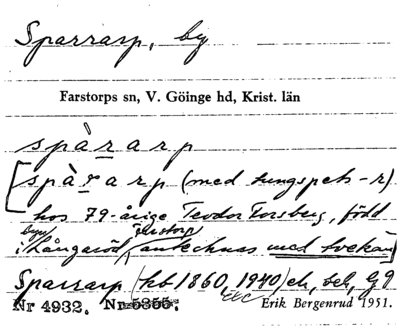 Sparrarp, by
Farstorps sn, V. Göinge hd, Krist. län
spàrarp
[spàrarp (med tungspets-r)
hos 79-årige Teodor Forsberg, född
byn Farstorp
i Långaröd, antecknas med tvekan]
Sparrarp (hb 1860, 1940) ek, bek, G9
Nr 4932. Nr 5355.
Erik Bergenrud 1951.